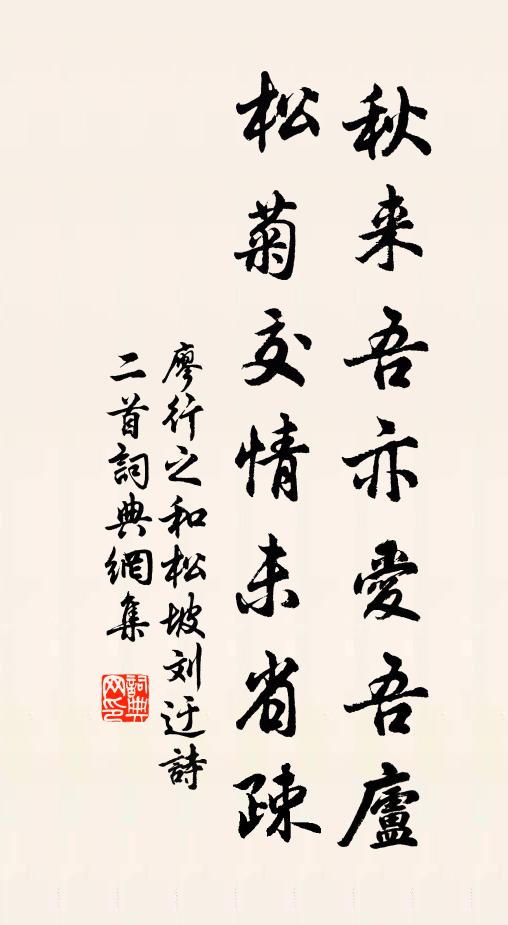 秋来吾亦愛吾廬
松菊交情未省疎
廖行之和松坡刘迂詩
二首詞典網集
詞典
网印